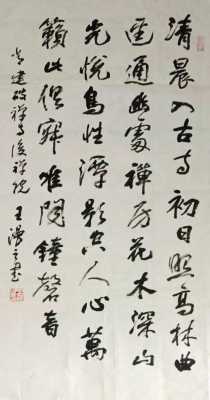 清晨入古寺初日照高林曲
逕通幽處禪房花木深山
光悦鳥性潭影空人心萬
籟此俱寂唯聞鐘磬音
常建破禪寺後禪院 王